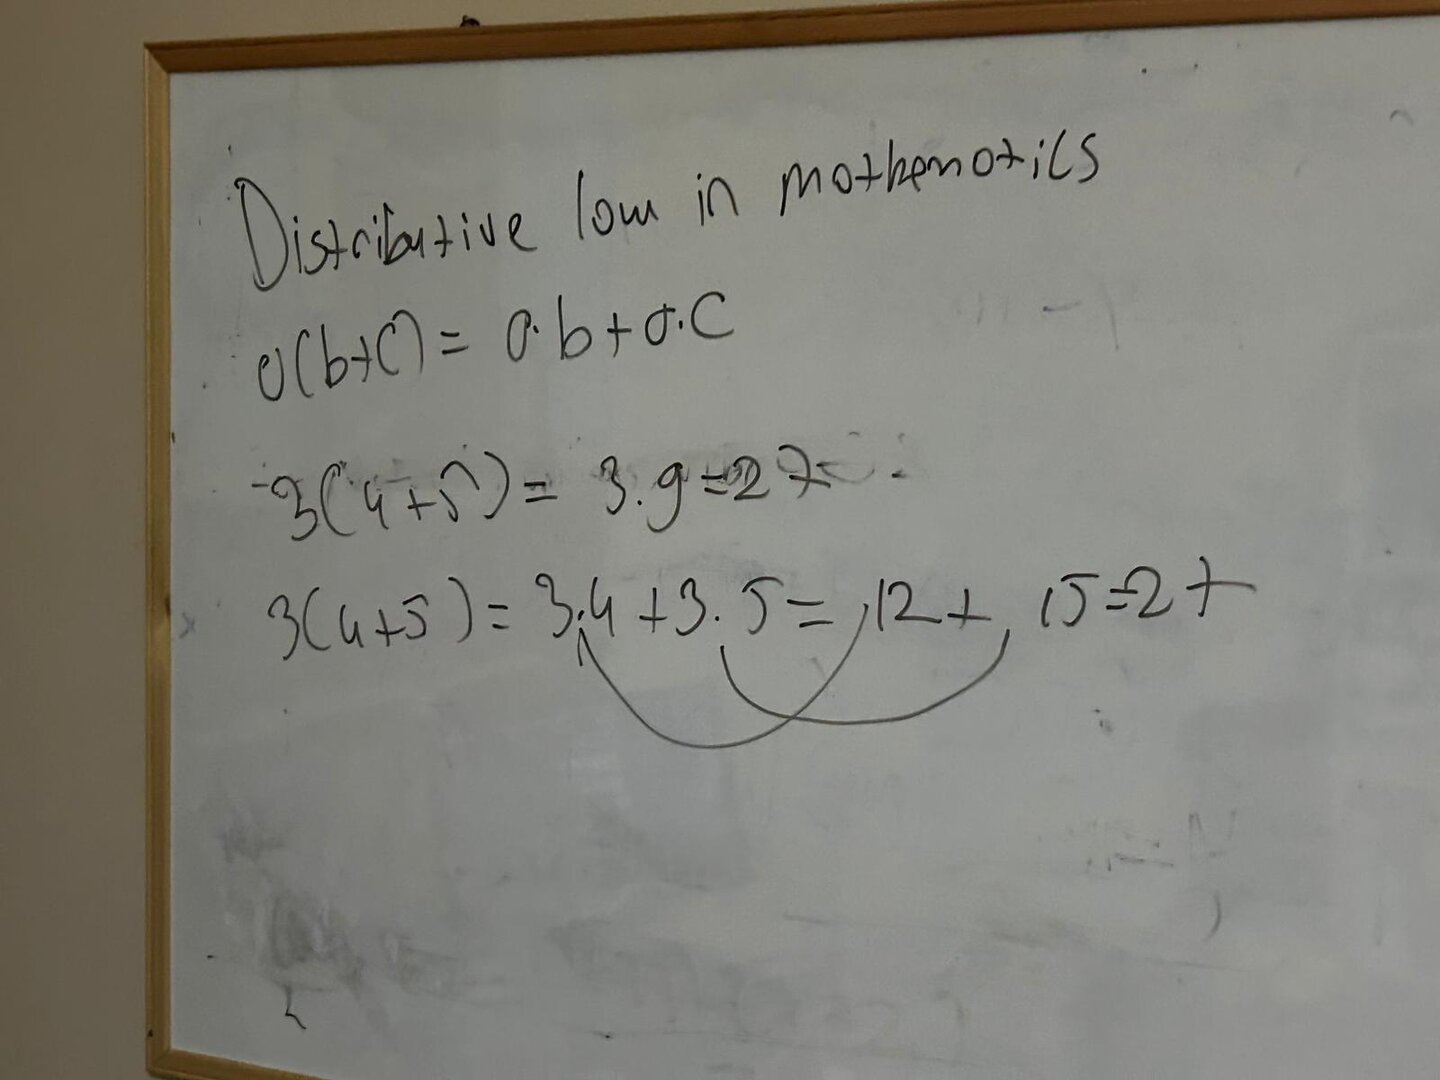 Distributive law in mathematics
a(b+c) = a·b+a·c
3(4+5) = 3.9=27
3(4+5) = 3.4+3.5= 12+ 15=27